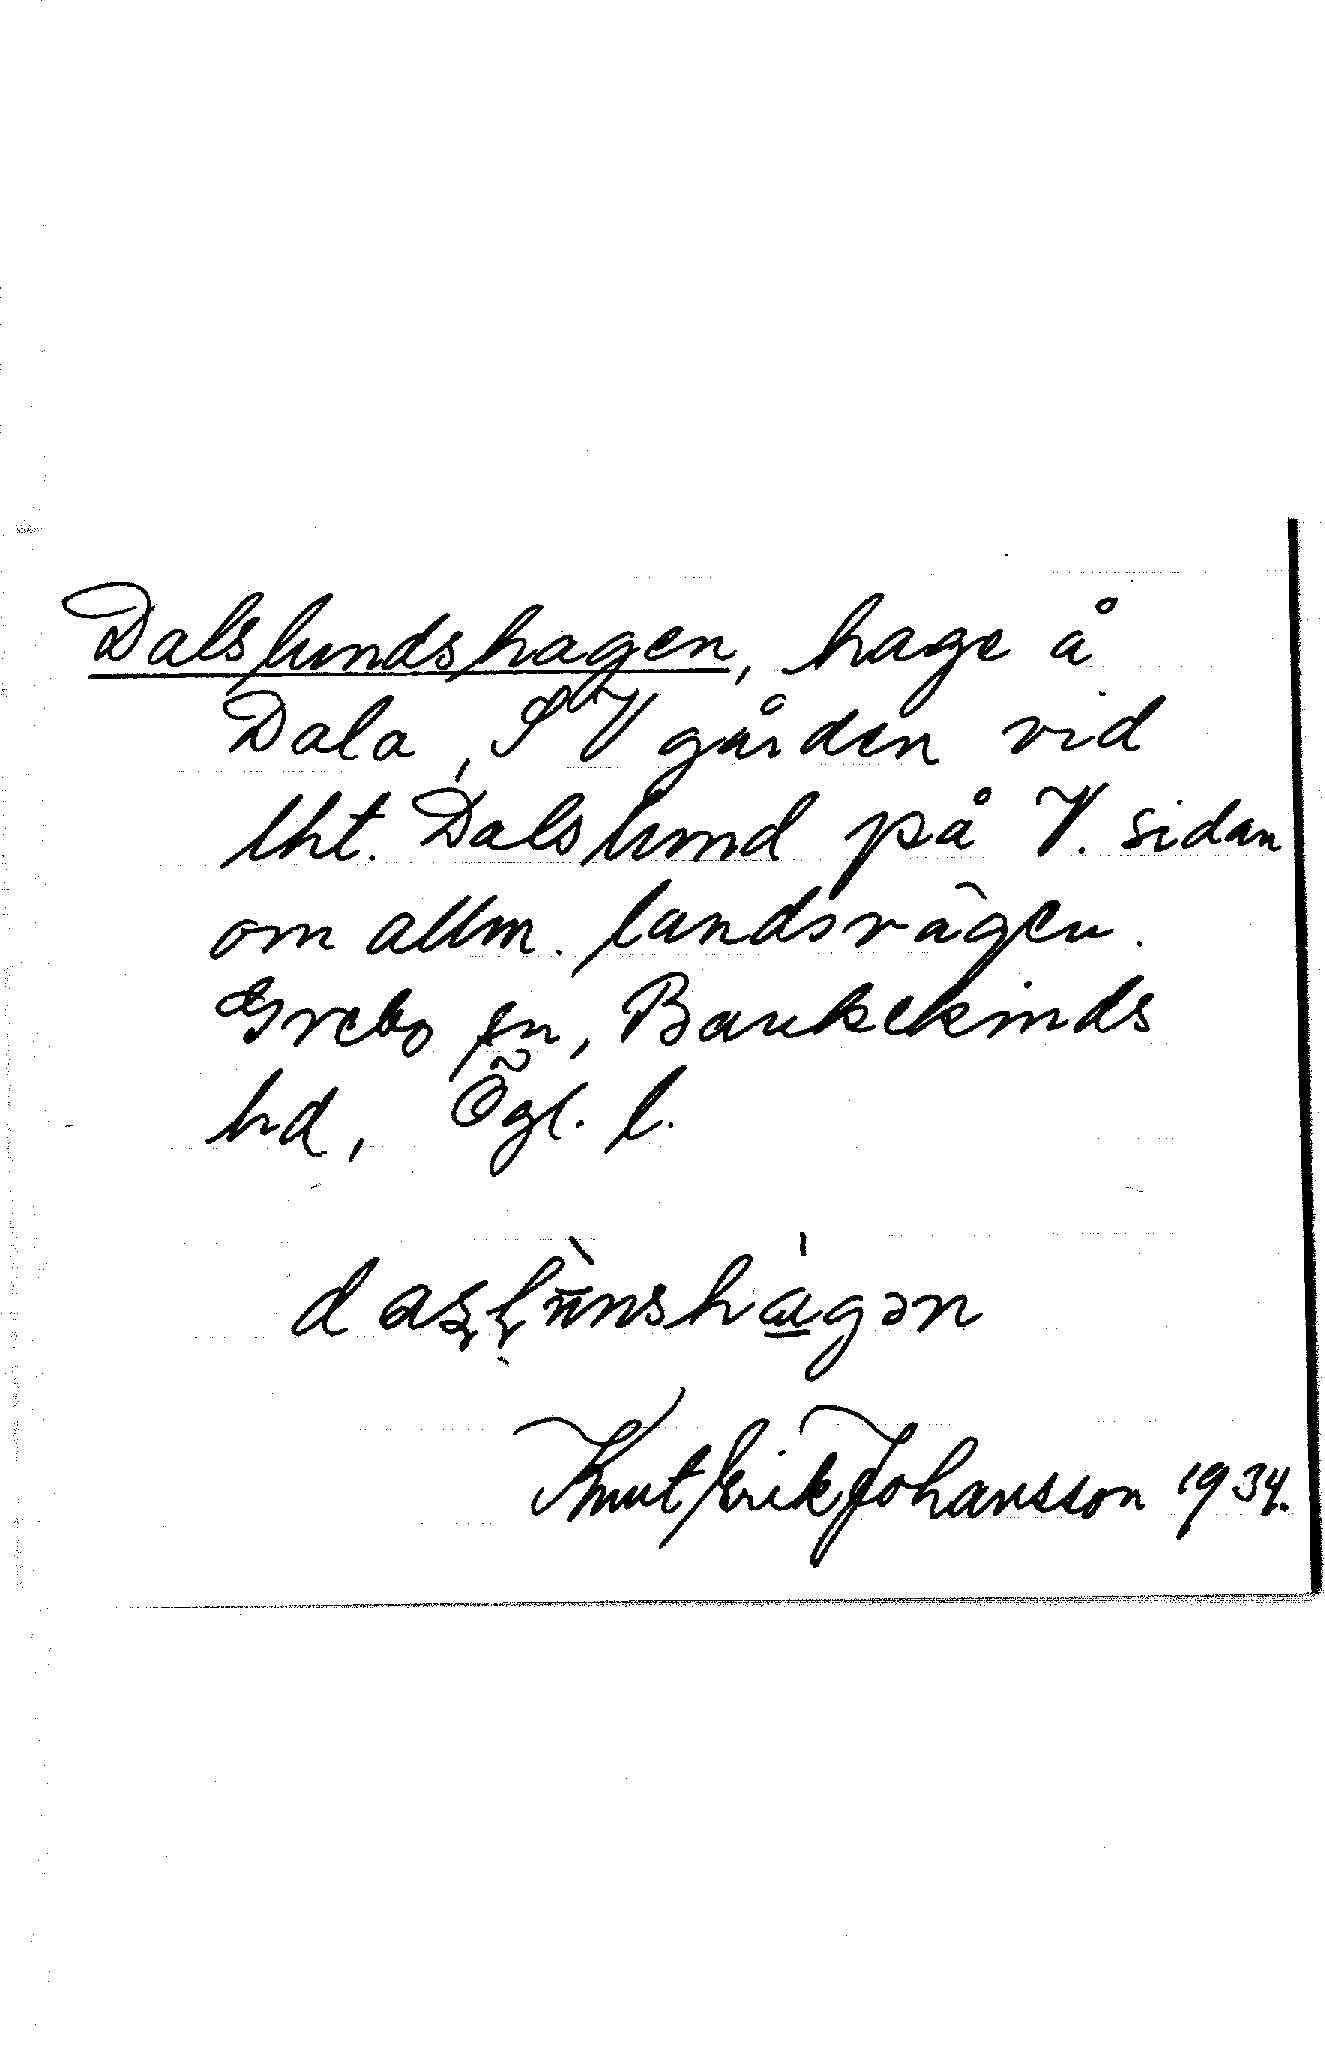 Dalslundshagen, hage å
Dala, SV gården vid
lht. Dalslund på V. sidan
om allm. landsvägen.
Grebo sn, Bankekinds
hd, Ögl. l.
Knut Erik Johansson 1934.